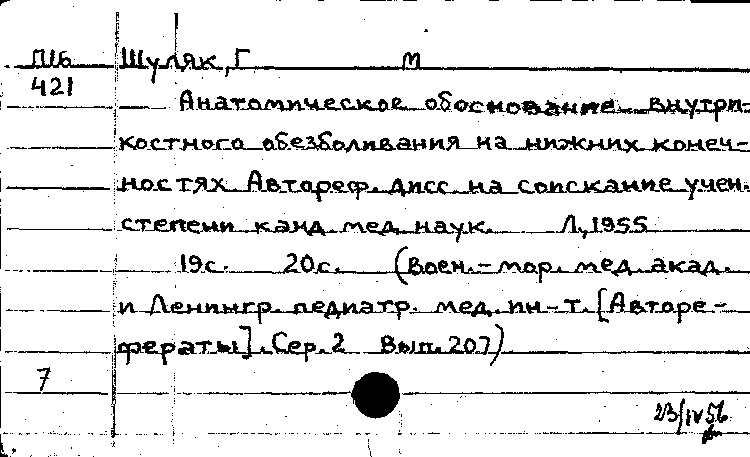 П1Б Шуляк, Г М
421
Анатомическое обоснование внутри-
костного обезболивания на нижних конеч-
ностях Автореф. дисс. на соискание учен.
степени канд. мед. наук. Л., 1955
19с. 20с. (Воен.-мор. мед. акад.
и Ленингр. педиатр. мед. ин-т. [Авторе-
фераты]. Сер. 2 Вып. 207)
7
23/IV 56